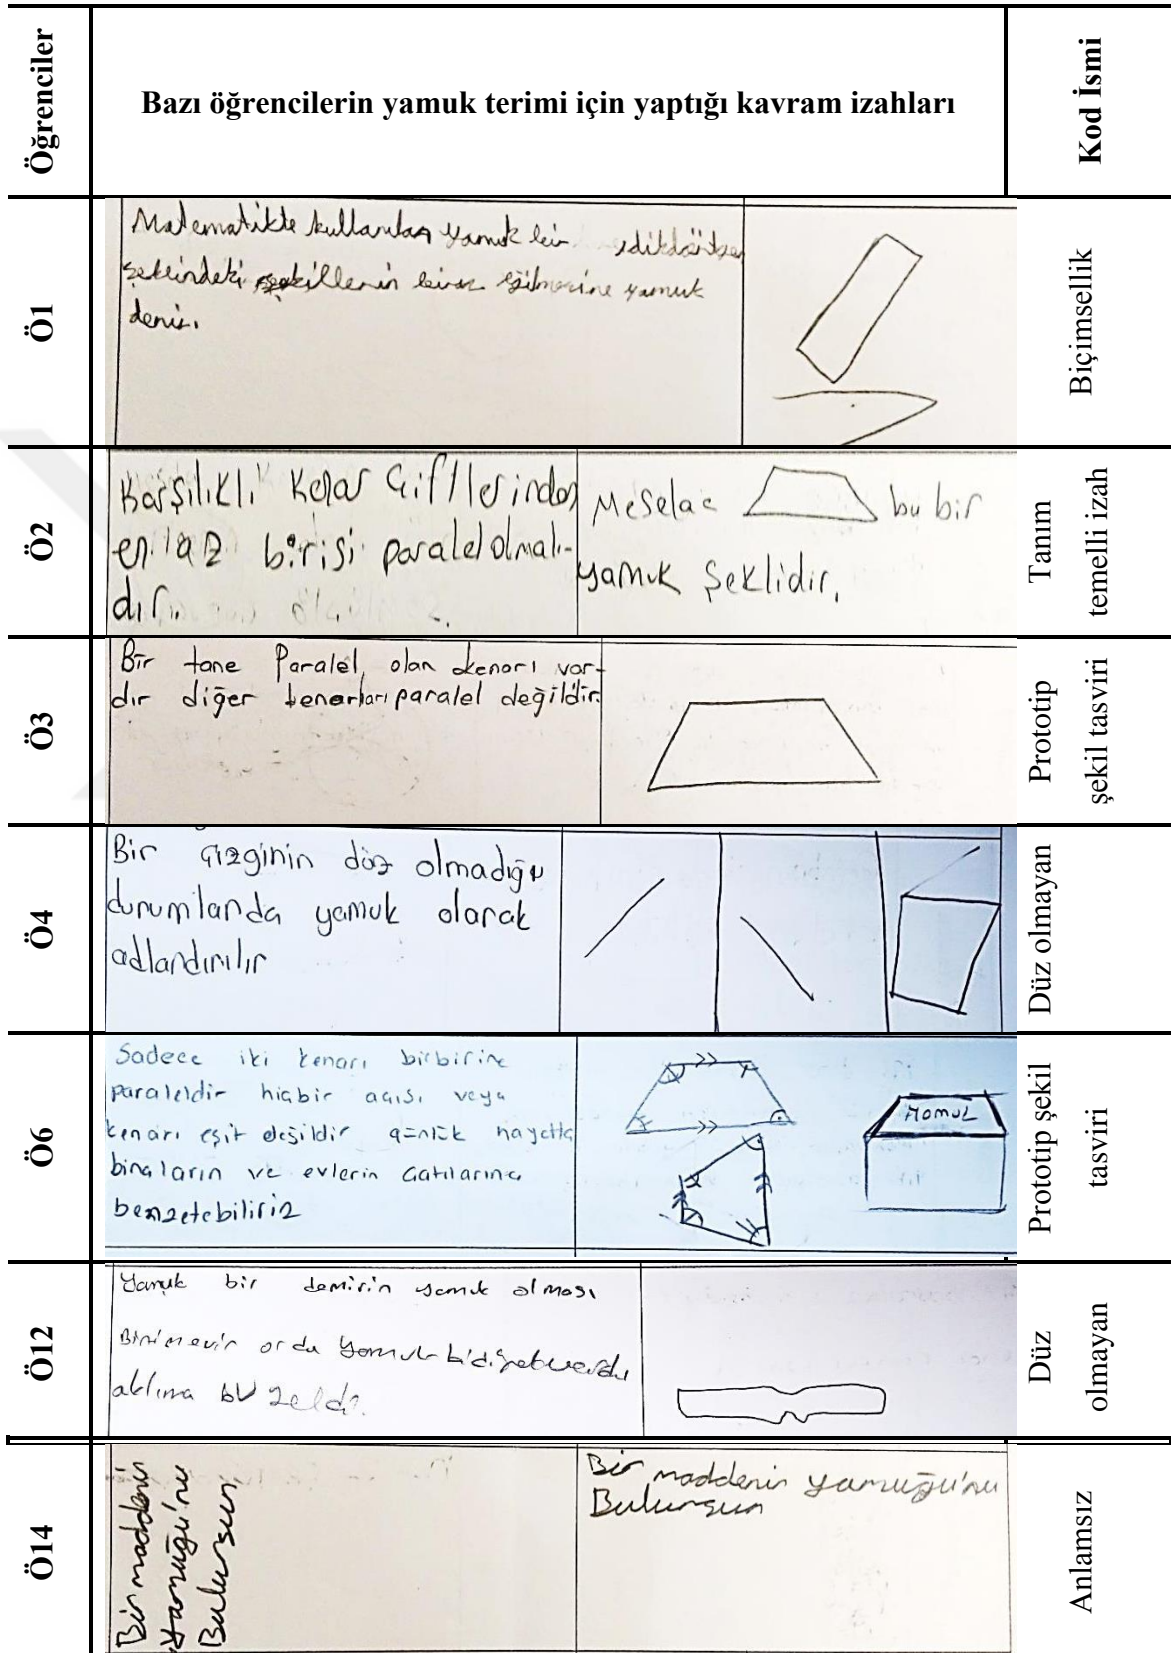 Öğrenciler
Bazı öğrencilerin yamuk terimi için yaptığı kavram izahları
Kod İsmi
Ö1
Matematikte kullanılan yamuk bir dikdörtgen
şeklindeki şekillerin biraz eğilmesine yamuk
denir.
Biçimsellik
Ö2
Karşılıklı kenar çiftlerinden
en az birisi paralel olmalı-
dır.
Mesela bu bir
yamuk şeklidir.
Tanım
temelli izah
Ö3
Bir tane Paralel olan kenarı var-
dır diğer kenarları paralel değildir.
Prototip
şekil tasviri
Ö4
Bir çizginin düz olmadığı
durumlarda yamuk olarak
adlandırılır
Düz olmayan
Ö6
Sadece iki kenarı birbirine
paraleldir hiçbir açısı veya
kenarı eşit değildir günlük hayatta
binaların ve evlerin çatılarına
benzetebiliriz
Prototip şekil
tasviri
Ö12
Yamuk bir demirin yamuk olması
orda yamuk
aklıma bu geldi.
Düz
olmayan
Ö14
Bir maddenin
yamuğu'nu
Bulursun
Bir maddenin yamuğu'nu
Bulursun
Anlamsız